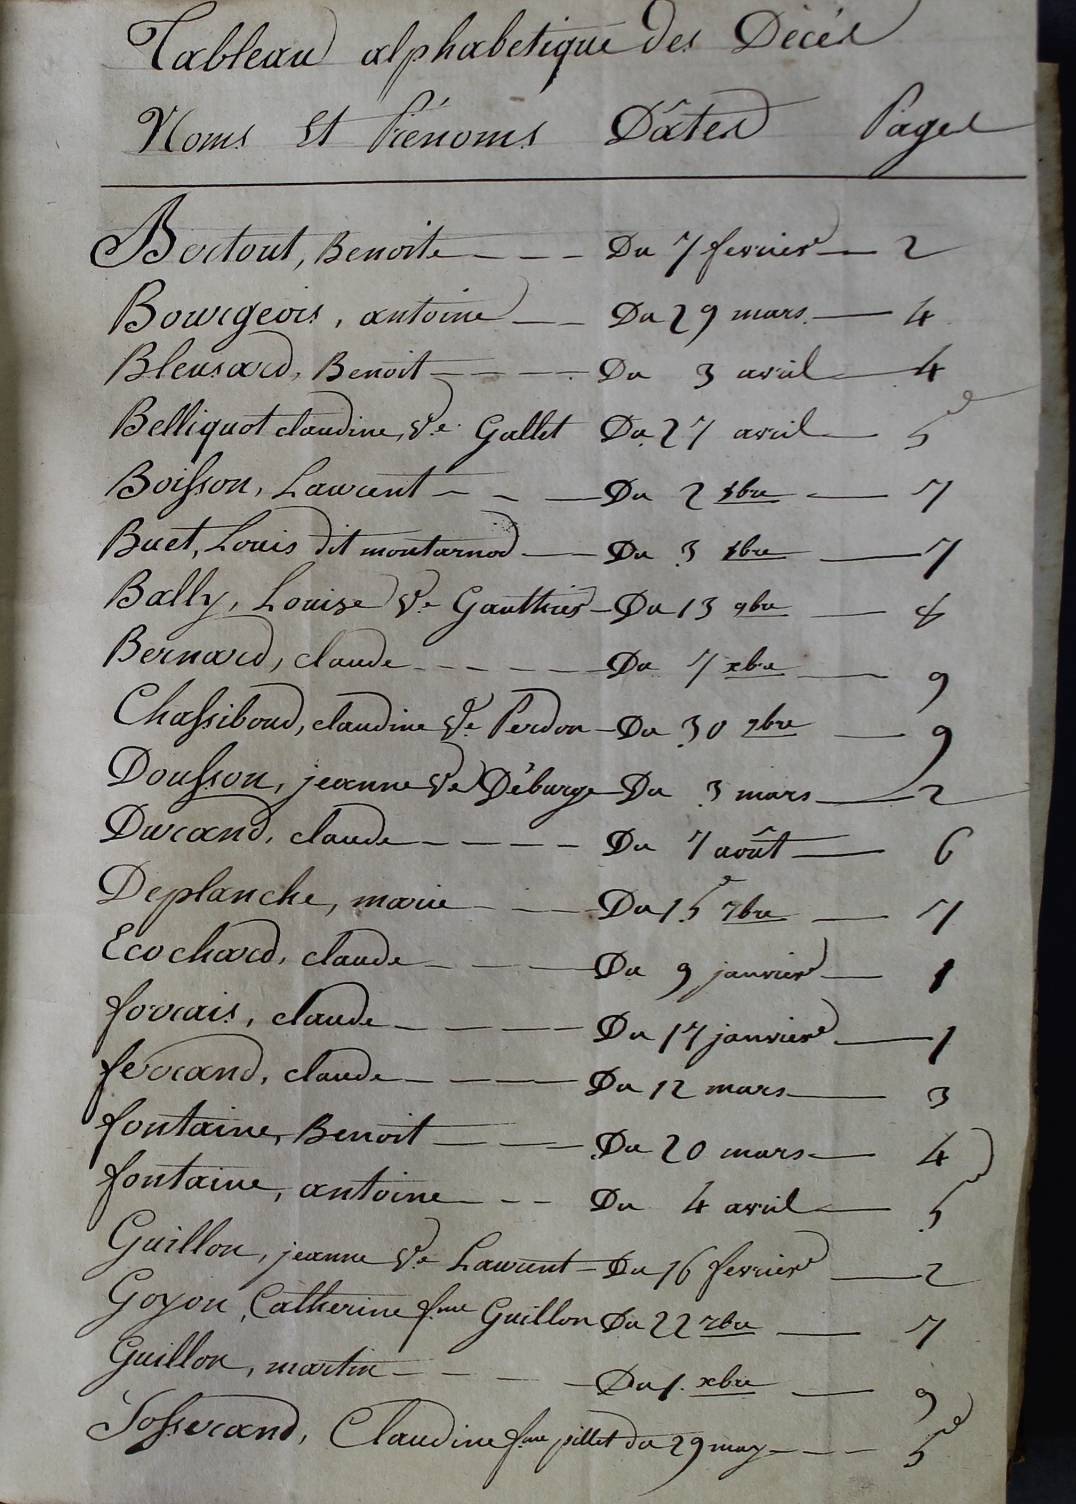 Tableau alphabetique des Décés
Noms Et Prénoms Dâtes Pages
Bertout, Benoite Du 7 fevrier 2
Bourgeois, antoine Du 29 mars 4
Bleusard, Benoit Du 3 avril 4
Belliquot claudine, Ve Gallet Du 27 avril 5
Boisson, Laurent Du 2 8bre 7
Buet, Louis dit montarnod Du 3 8bre 7
Bally, Louise Ve Gauthier Du 13 9bre 8
Bernard, claude Du 7 xbre 9
Chassiboud, claudine Ve Perdon Du 30 9bre 9
Dousson, jeanne Ve Déburge Du 3 mars 2
Durand, claude Du 7 août 6
Deplanche, marie Du 15 7bre 7
Ecochard, claude Du 9 janvier 1
forrais, claude Du 17 janvier 1
ferrand, claude Du 12 mars 3
fontaine, Benoit Du 20 mars 4
fontaine, antoine Du 4 avril 5
Guillon, jeanne Ve Laurent Du 16 fevrier 2
Goyon, Catherine fme Guillon Du 22 7bre 7
Guillon, martin Du 1. xbre 9
Josserand, Claudine fme pillet du 29 may 5